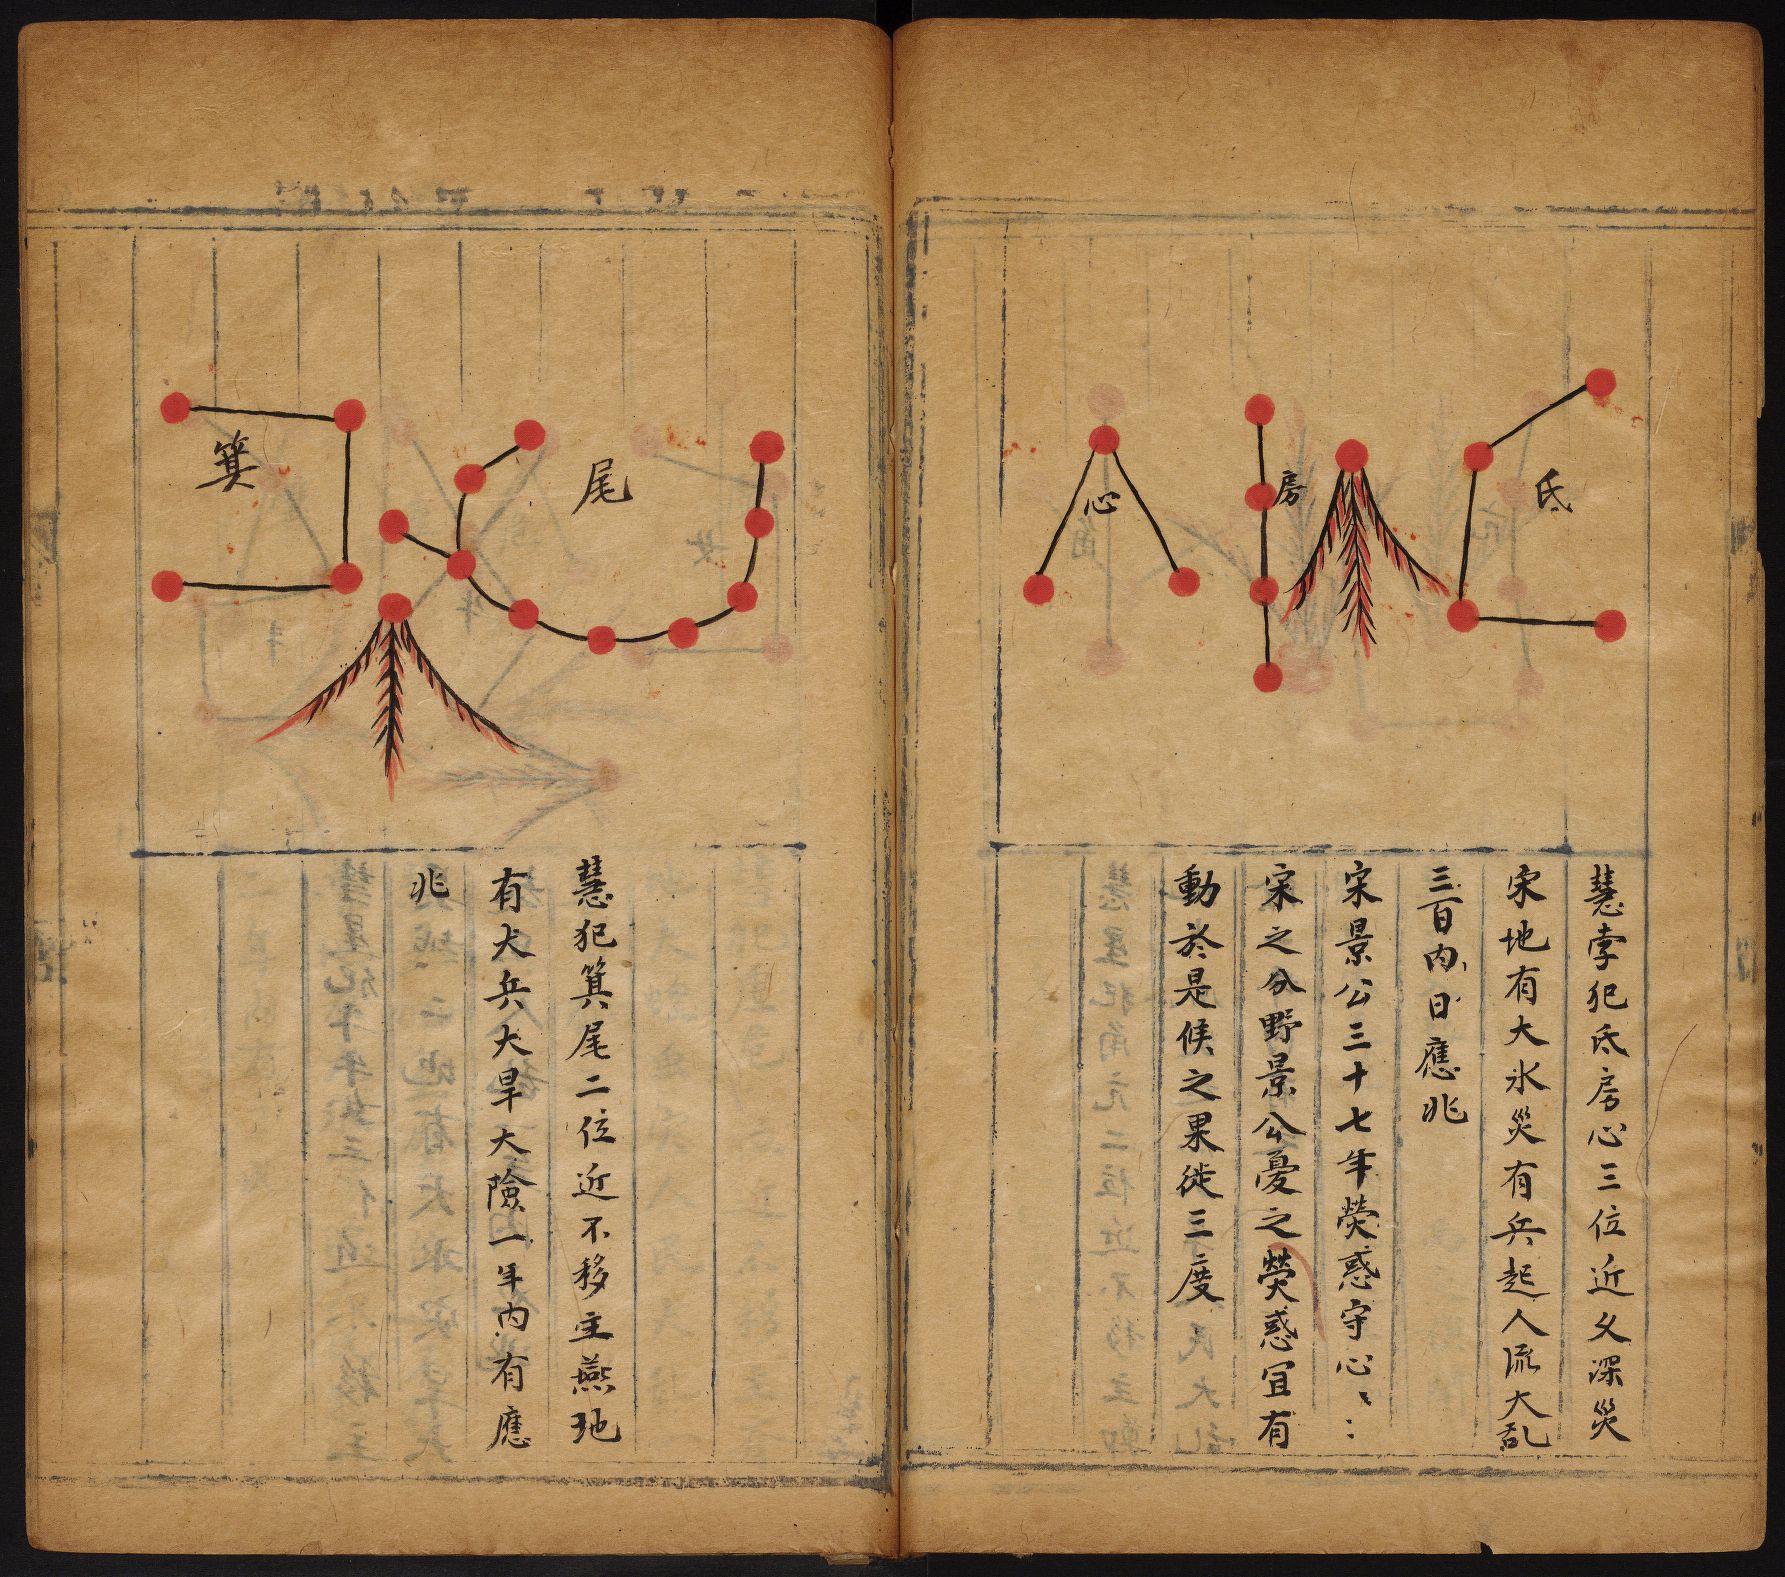 氐
房
心
慧孛犯氐房心三位近久深災
宋地有大水災有兵起人流大乱
三百內日應兆
宋景公三十七年熒惑守心〻
宋之分野景公憂之熒惑宜有
動於是候之果徙三度
尾
箕
慧犯箕尾二位近不移主燕地
有犬兵大旱大險一年內有應
兆